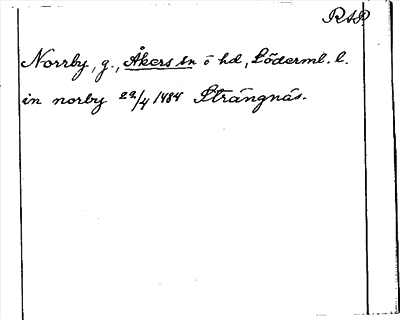 RAP
Norrby, g., Åkers sn ö hd, Söderml. l.
in norby 22/4 1484 Strängnäs.